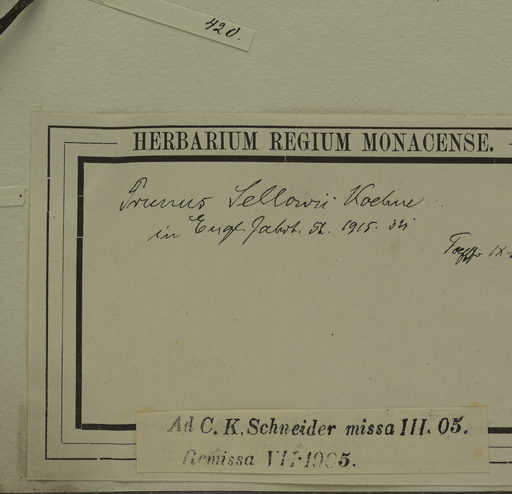 420.
HERBARIUM REGIUM MONACENSE.
Prunus Sellowii Koehne
in Engl. Jahrb. 52. 1915.
IX-
Ad C. K. Schneider missa III. 05.
Remissa VII-1905.